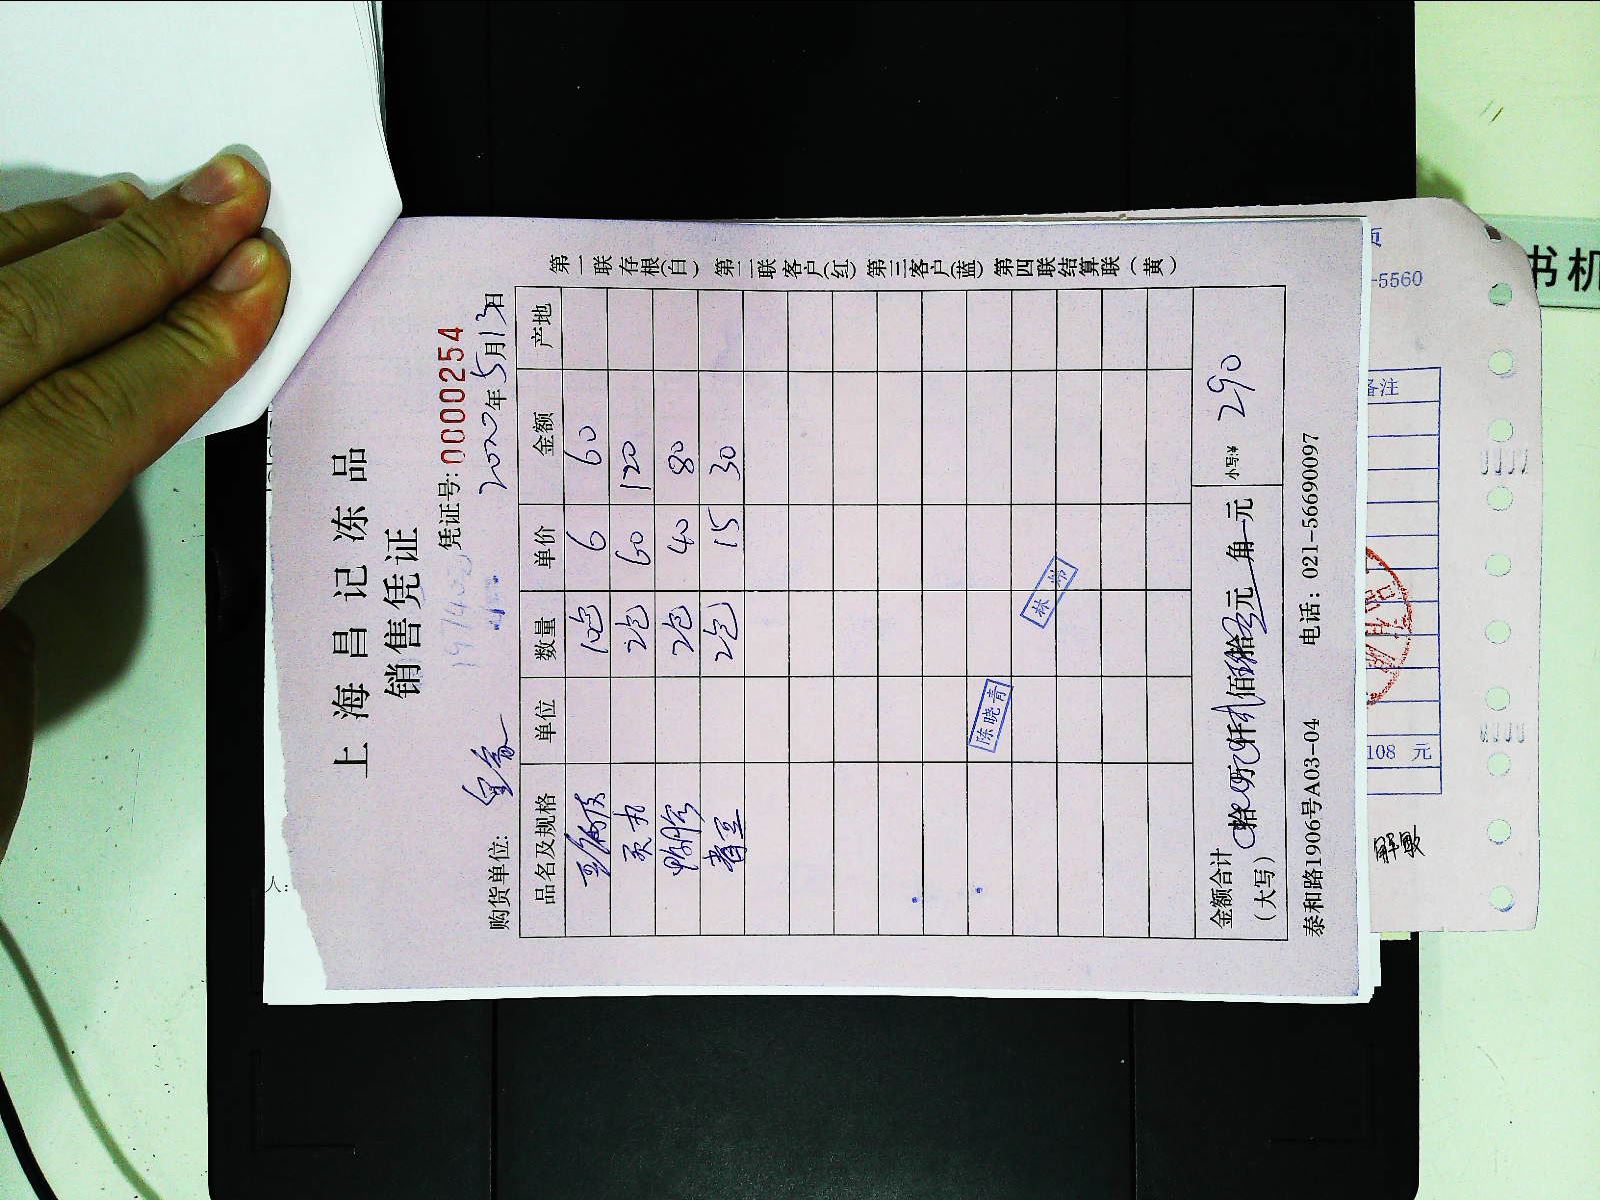 上海昌记冻品
销售凭证
凭证号:0000254
购货单位:
2020年5月13日
品名及规格 单位 数量 单价 金额 产地
10包 6 60
2包 60 120
2包 40 80
青豆 2包 15 30
陈晓青
林
金额合计
(大写)
拾 万 仟 佰 拾 元 角 元
小写:¥ 290
泰和路1906号A03-04 电话: 021-56690097
第一联存根(白) 第二联客户(红) 第三客户(蓝) 第四联结算联(黄)
-5560
备注
108 元
人:
书机